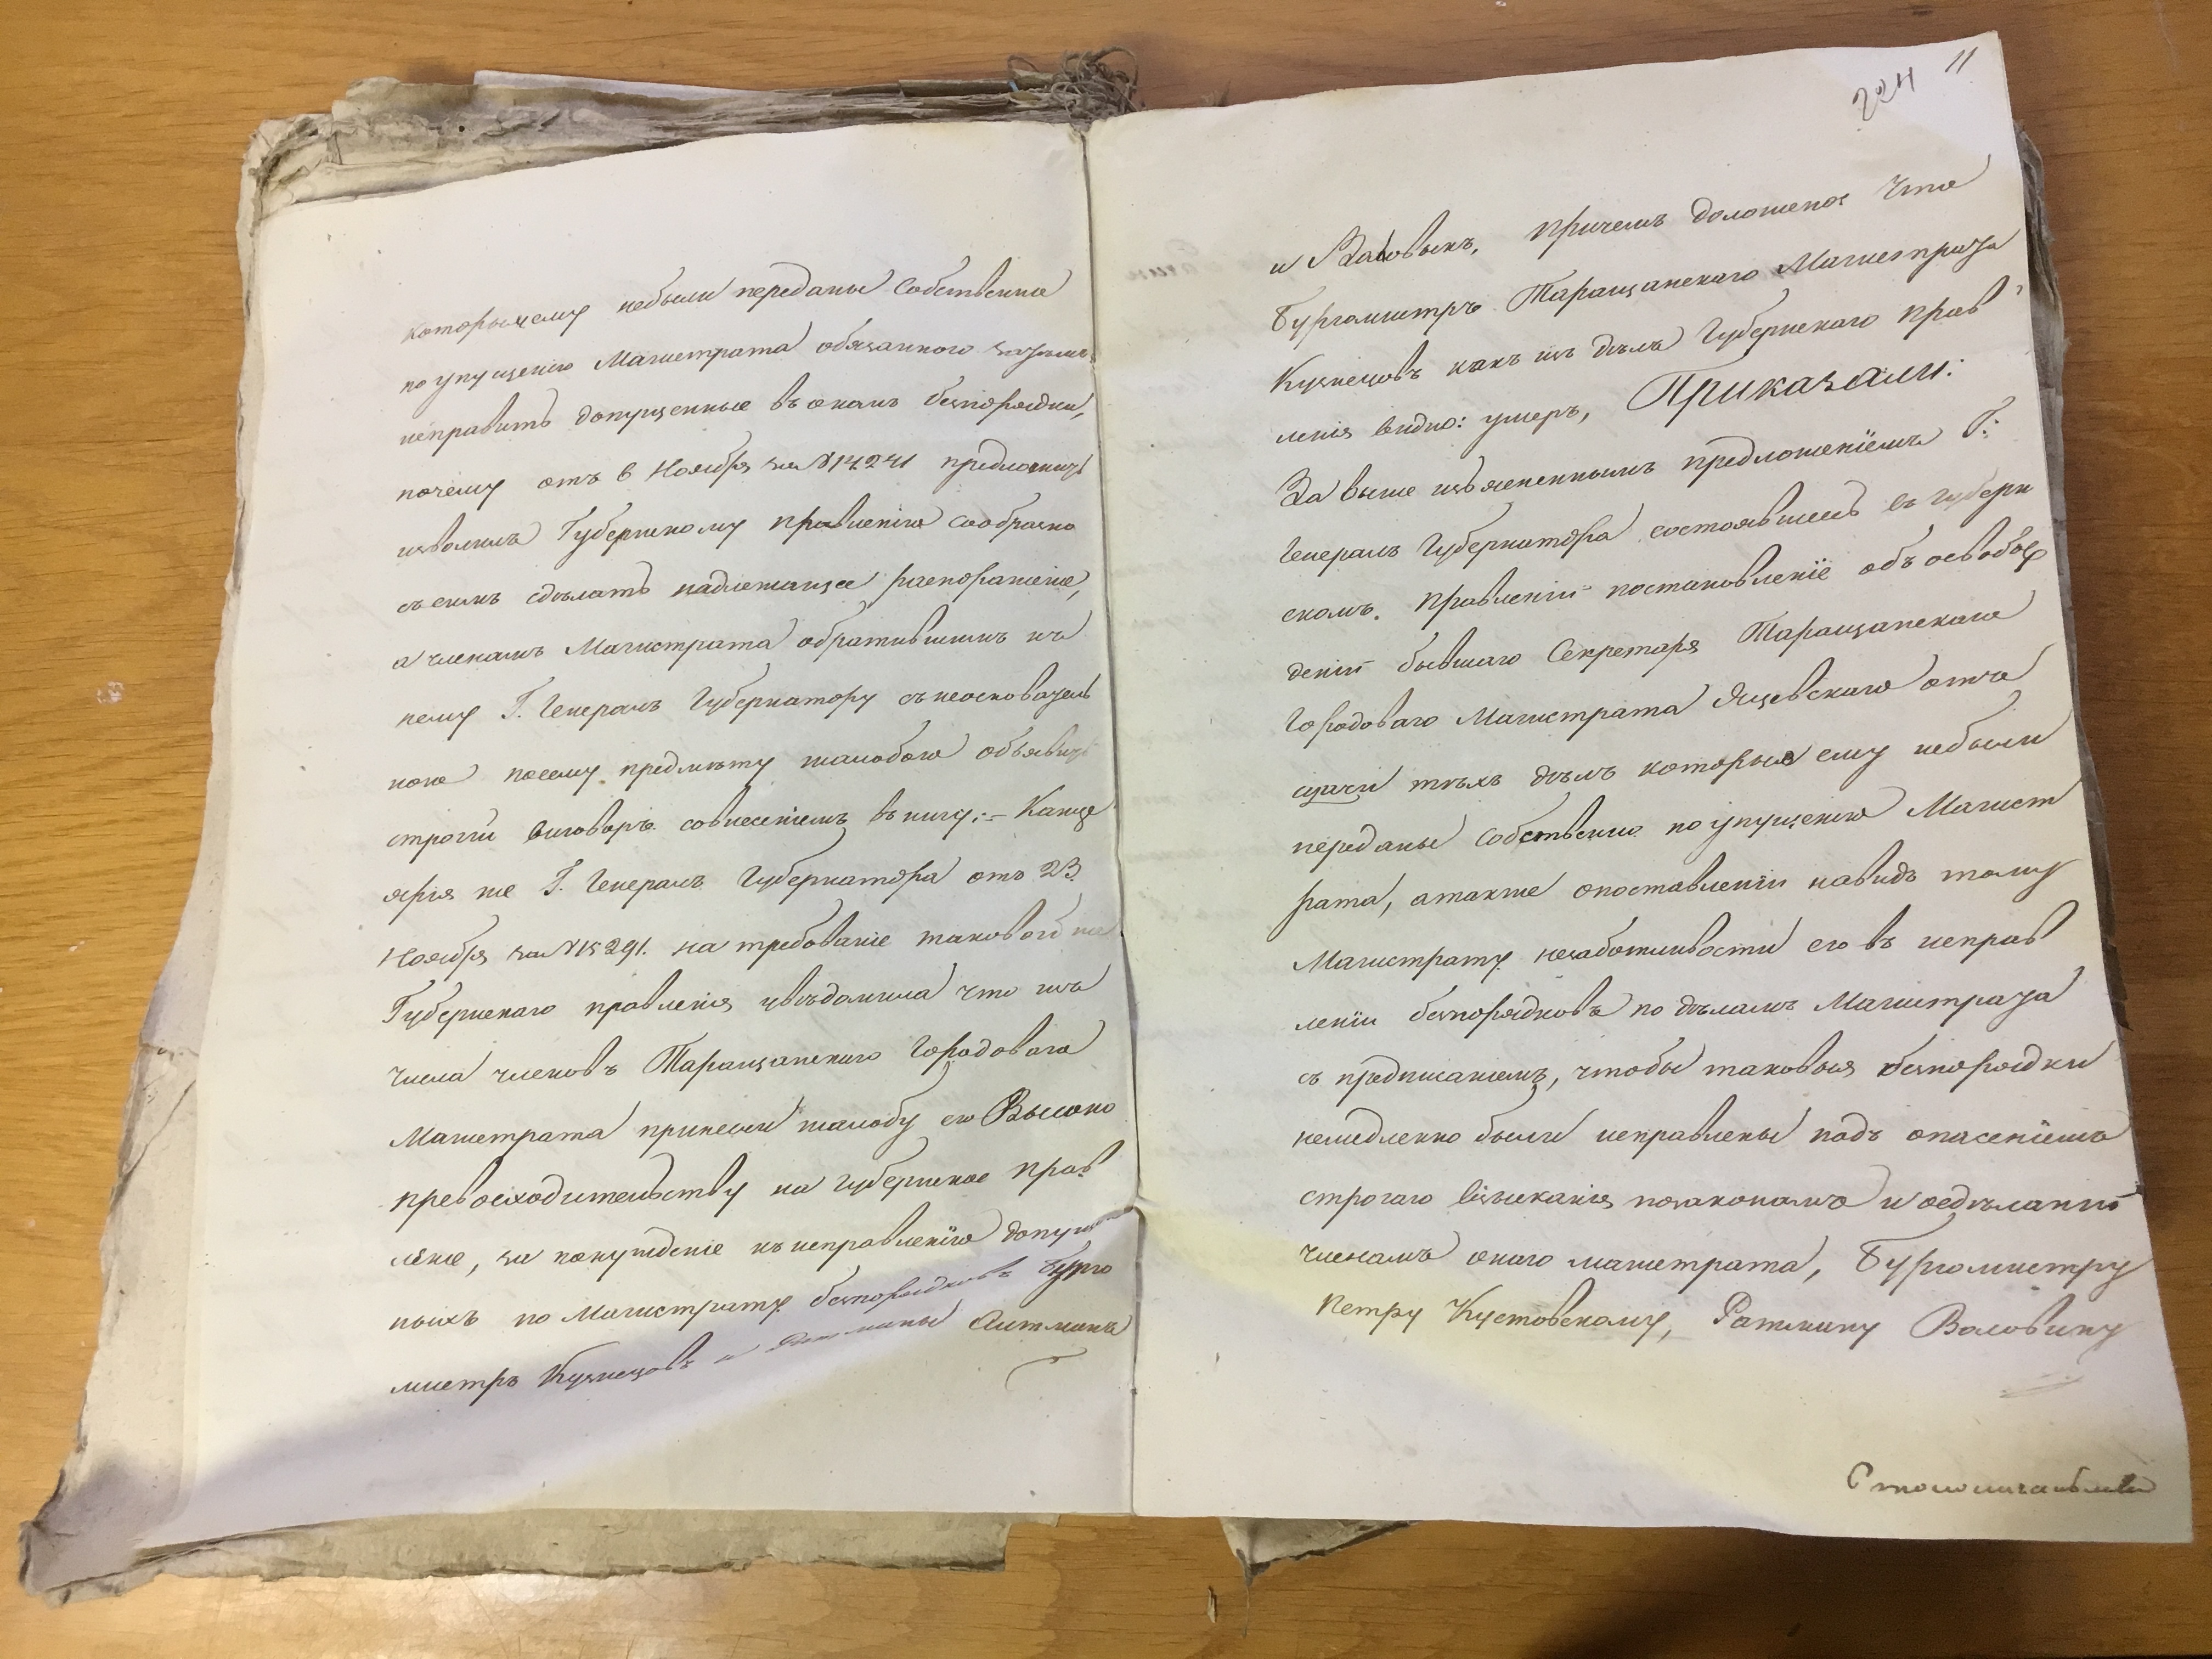 которые ему небыли переданы собственно
по упущенію Магистрата обязанного
исправить допущенные въ ономъ безпорядки,
почему отъ 6 Ноября за № 14241 предложить
изволилъ Губернскому правленію сообразно
съ симъ сдѣлать надлежащее распоряженіе,
а членамъ Магистрата обратившимъ къ
нему Г. Генералъ Губернатору съ неосновател
ною по сему предмѣту жалобою объявить
строгій выговоръ со внесеніемъ въ книгу; – Канце
лярія же Г. Генералъ Губернатора отъ 23.
Ноября за № 15291. на требованіе таковой
Губернскаго правленія увѣдомила что изъ
числа членовъ Таращанскаго Городоваго
Магистрата принесли жалобу его Высоко
превосходительству на губернское прав
леніе, за понужденіе къ исправленію допущен
ныхъ по Магистрату безпорядковъ Бурго
мистръ Кузнецовъ и Ратманы
224 11
и причемъ доложено: Что
Бургомистръ Таращанскаго Магистрата
Кузнецовъ какъ изъ дѣлъ Губернскаго прав
ленія видно: умеръ, Приказали:
За выше изъясненнымъ предложеніемъ Г:
Генералъ Губернатора состоявшеесь въ губерн
скомъ. Правленіи постановленіе объ освобож
деніи бывшаго Секретаря Таращанскаго
Городоваго Магистрата Яцевскаго отъ
сдачи тѣхъ дѣлъ которые ему небыли
переданы собственно по упущенію Магист
рата, а также о поставленіи на видъ тому
Магистрату незаботливости его въ исправ
леніи безпорядковъ по дѣламъ Магистрата
съ предписаніемъ, чтобы таковыя безпорядки
немедленно были исправлены подъ опасеніемъ
строгаго взысканія по законамъ и о сдѣланіи
членамъ онаго магистрата, Бургомистру
Петру Кустовскому, Ратману Воловику